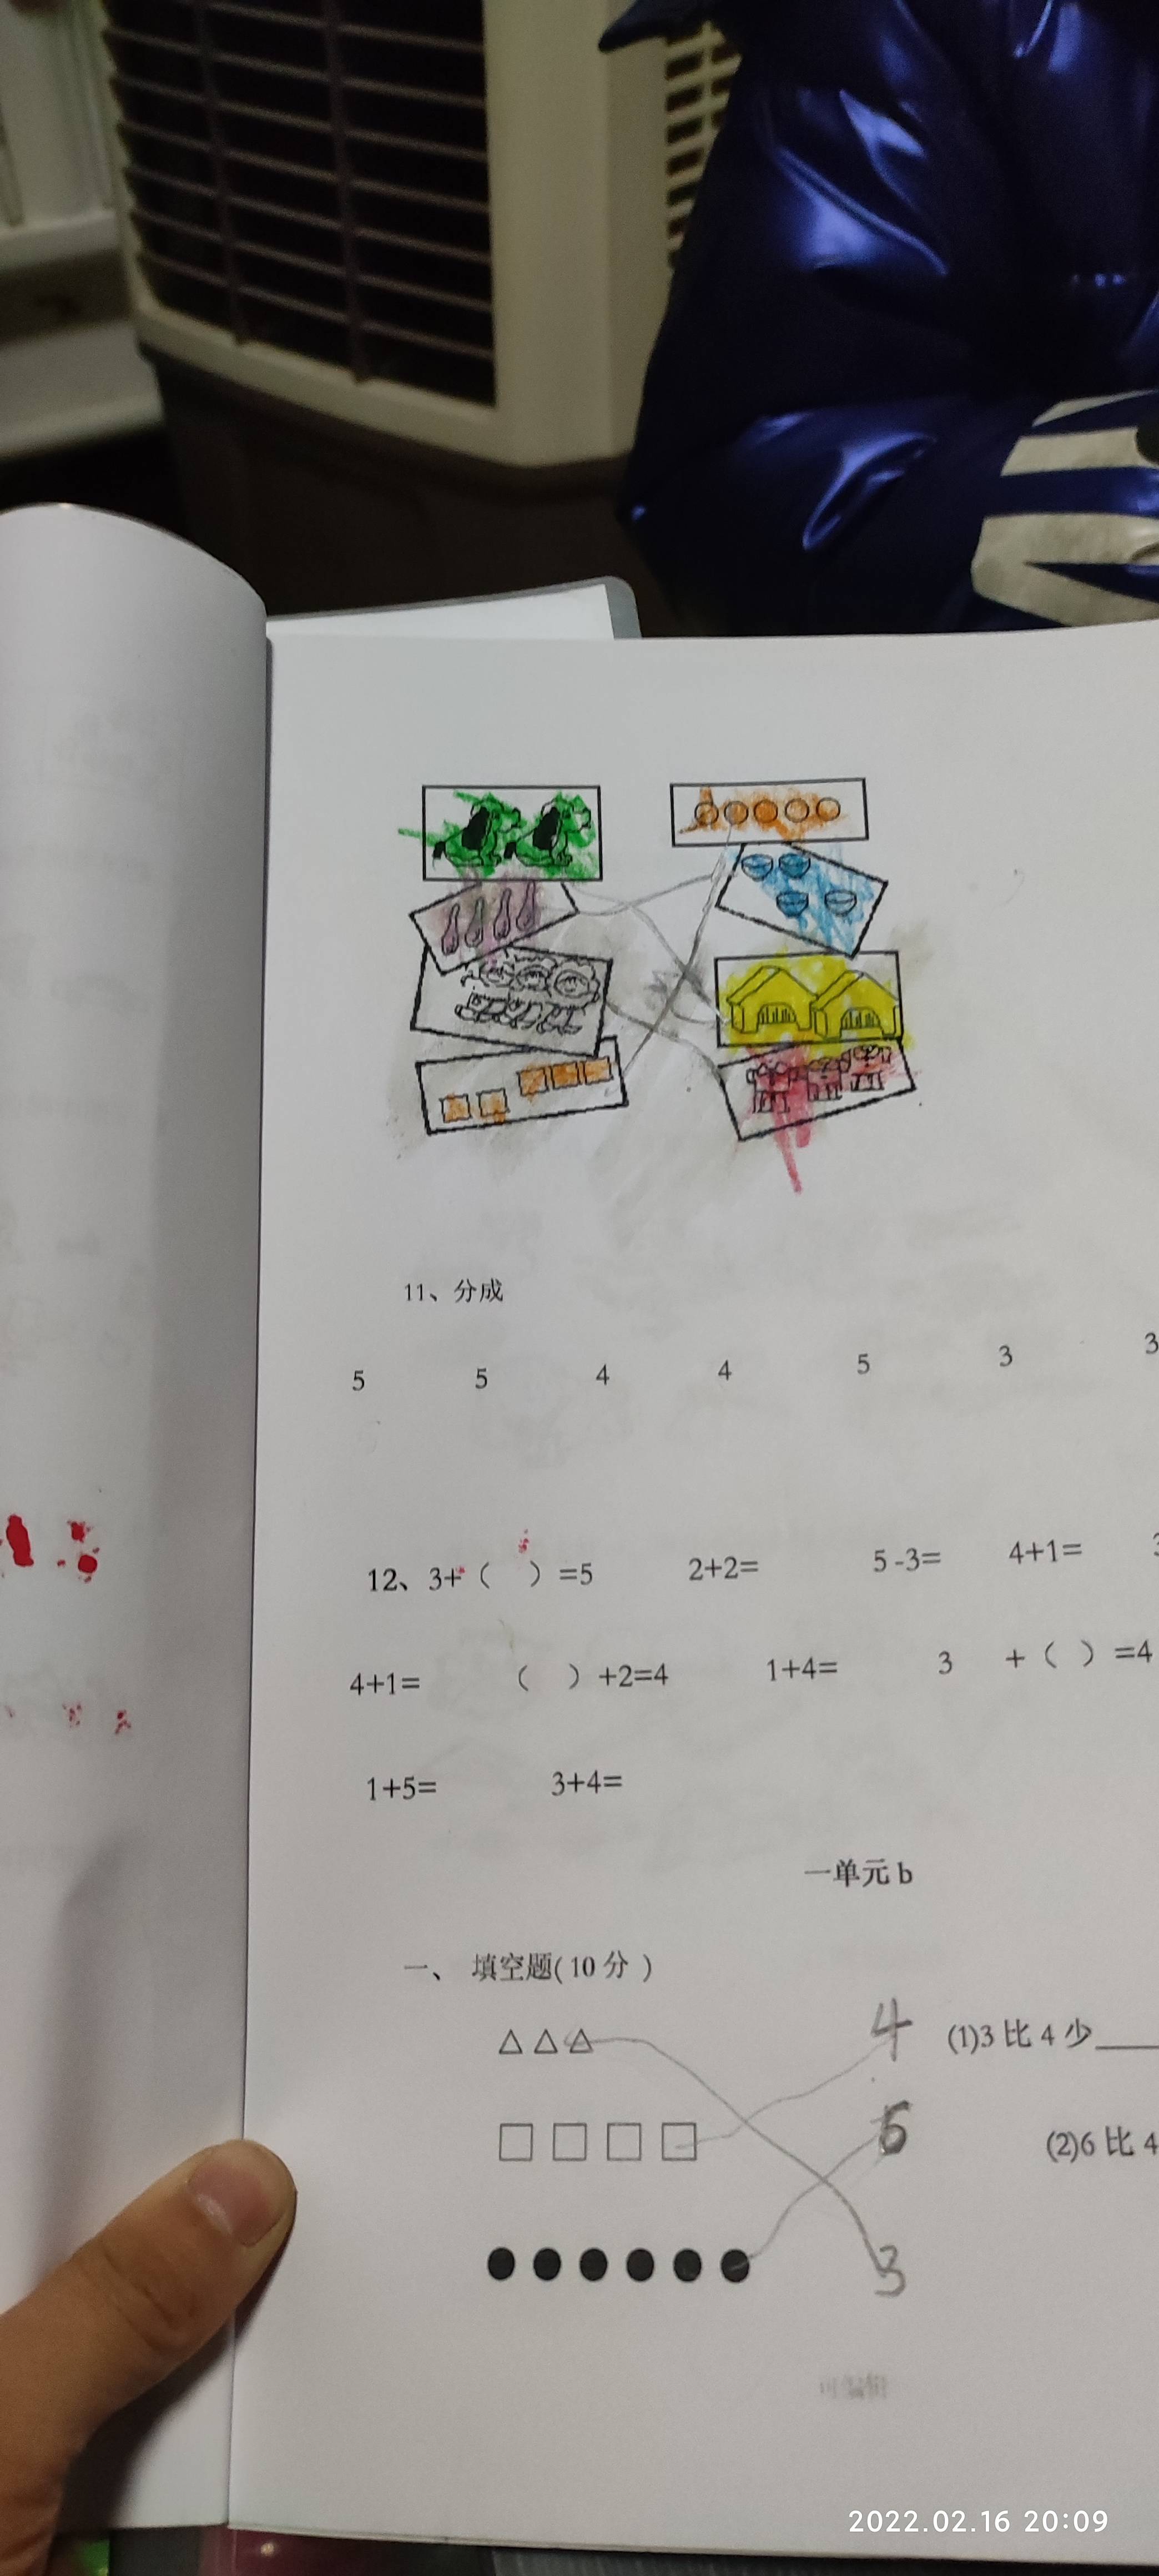 11、分成
5 5 4 4 5 3 3
12、3+（ ）=5 2+2= 5-3= 4+1=
4+1= （ ）+2=4 1+4= 3 +（ ）=4
1+5= 3+4=
一单元 b
一、 填空题(10 分 )
4 (1)3 比 4 少____
6 (2)6 比 4
3
可编辑
2022.02.16 20:09